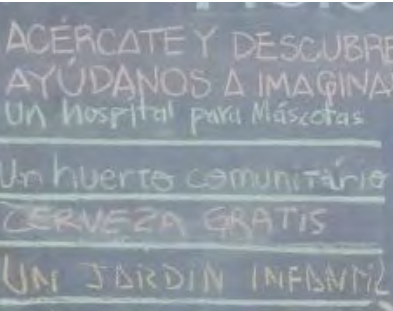 ACÉRCATE Y DESCUBRE
AYÚDANOS A IMAGINA
Un hospital para Máscotas
Un huerto comunitário
CERVEZA GRATIS
UN JARDIN INFANTIL